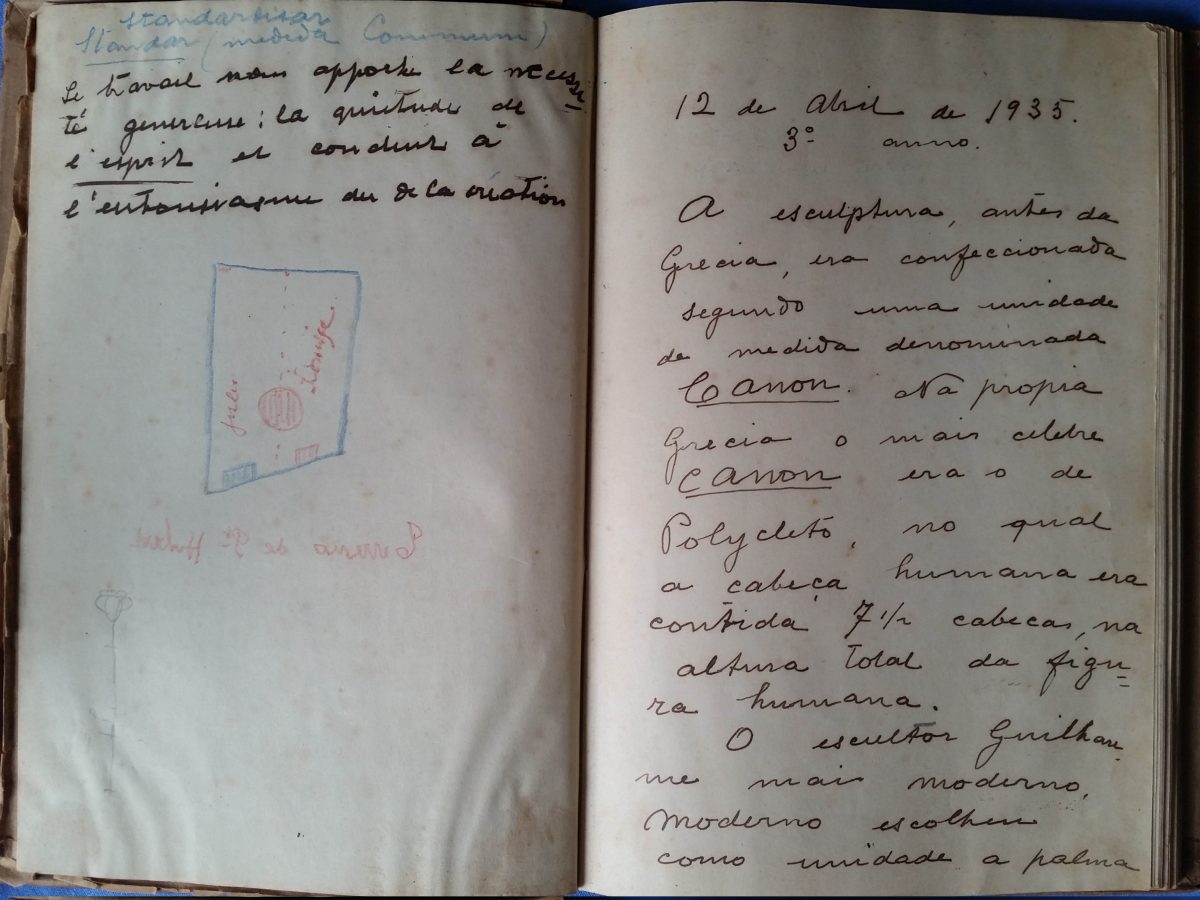 standardisar
Standar (medida Commum)
Le travail nous apporte la necessi-
té genereuse; la quietude de
l'esprit et conduit à
l'entousiasme du de la création
Julio
Terreno de
12 de Abril de 1935.
3º anno.
A esculptura, antes da
Grecia, era confeccionada
segundo uma unidade
de medida denominada
Canon. Na propria
Grecia o mais celebre
Canon era o de
Polycleto, no qual
a cabeça humana era
contida 7 1/2 cabecas, na
altura total da figu-
ra humana.
O escultor Guilhau
me mais moderno,
Moderno escolheu
como unidade a palma